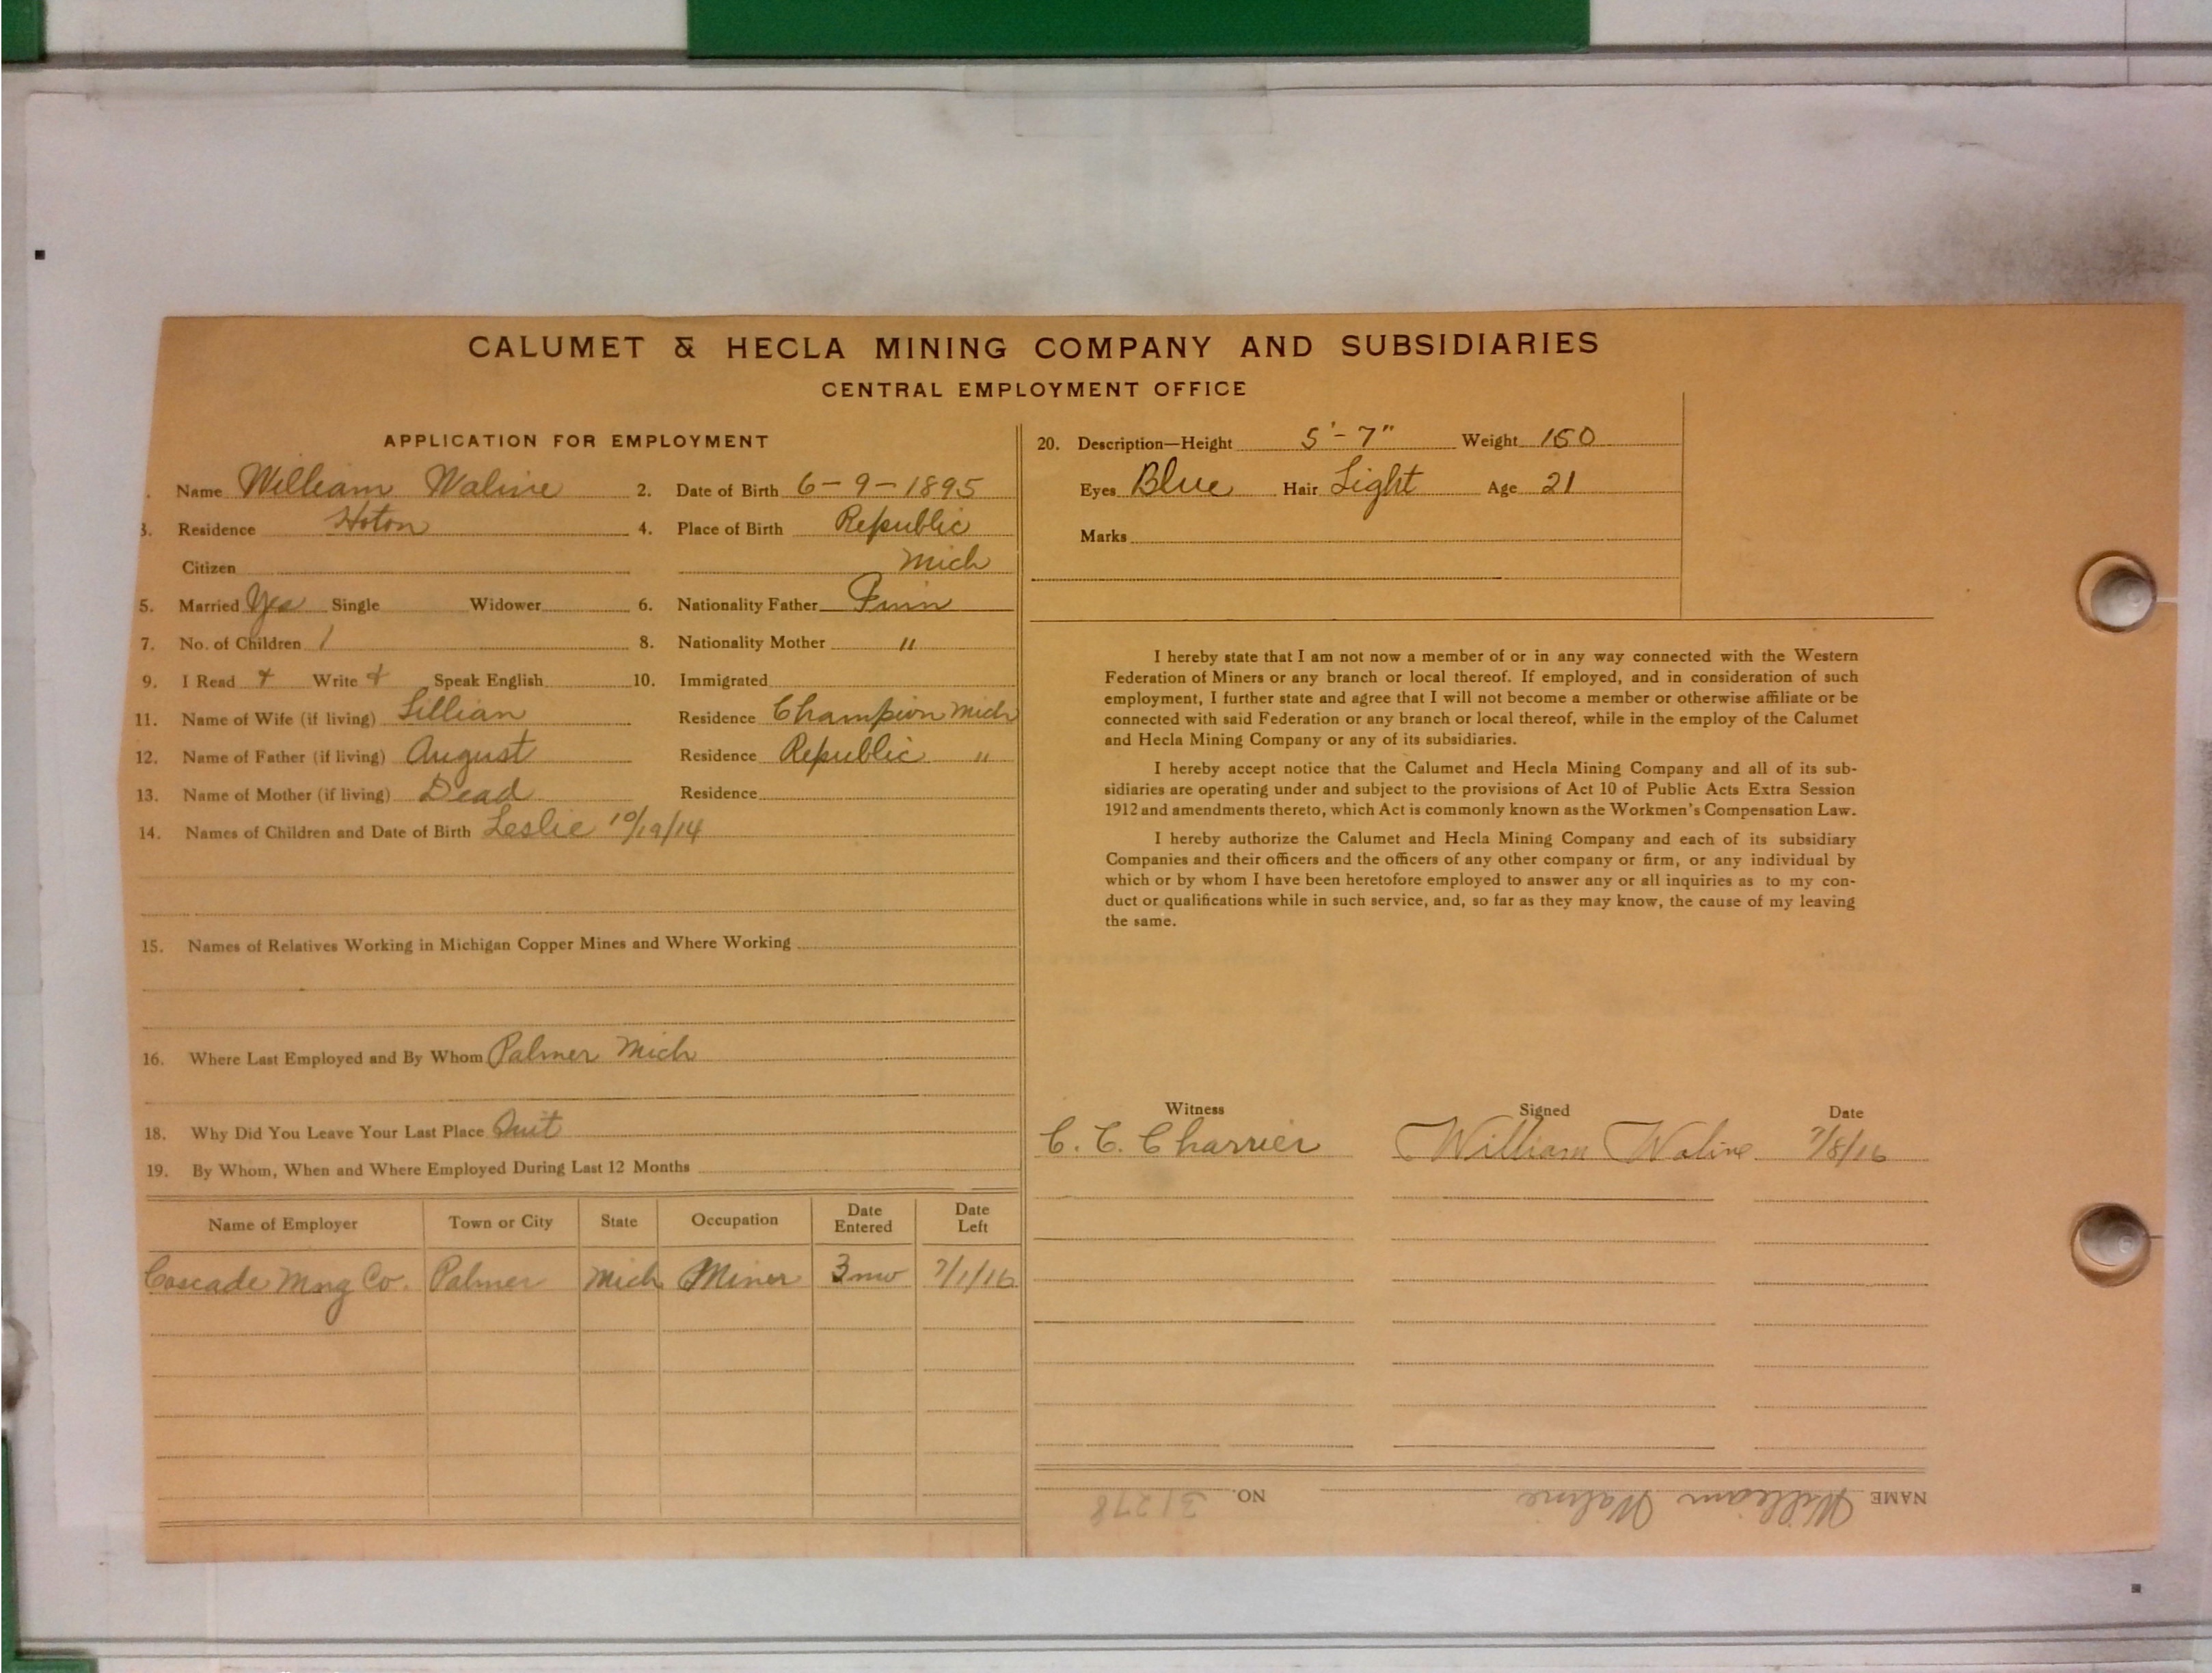 CALUMET & HECLA MINING COMPANY AND SUBSIDIARIES
CENTRAL EMPLOYMENT OFFICE
APPLICATION FOR EMPLOYMENT
Name William Waline 2. Date of Birth 6-9-1895
3. Residence Hoton 4. Place of Birth Republic
Citizen Mich
5. Married Yes Single Widower 6. Nationality Father Finn
7. No. of Children 1 8. Nationality Mother "
9. I Read Write Speak English 10. Immigrated
11. Name of Wife (if living) Lillian Residence Champion Mich
12. Name of Father (if living) August Residence Republic "
13. Name of Mother (if living) Dead Residence
14. Names of Children and Date of Birth Leslie 10/19/14
15. Names of Relatives Working in Michigan Copper Mines and Where Working
16. Where Last Employed and By Whom Palmer Mich
18. Why Did You Leave Your Last Place Quit
19. By Whom, When and Where Employed During Last 12 Months
Name of Employer Town or City State Occupation Date Entered Date Left
Cascade Mng Co. Palmer Mich Miner 3 mo 7/1/16
20. Description—Height 5'-7" Weight 150
Eyes Blue Hair Light Age 21
Marks
I hereby state that I am not now a member of or in any way connected with the Western
Federation of Miners or any branch or local thereof. If employed, and in consideration of such
employment, I further state and agree that I will not become a member or otherwise affiliate or be
connected with said Federation or any branch or local thereof, while in the employ of the Calumet
and Hecla Mining Company or any of its subsidiaries.
I hereby accept notice that the Calumet and Hecla Mining Company and all of its sub-
sidiaries are operating under and subject to the provisions of Act 10 of Public Acts Extra Session
1912 and amendments thereto, which Act is commonly known as the Workmen's Compensation Law.
I hereby authorize the Calumet and Hecla Mining Company and each of its subsidiary
Companies and their officers and the officers of any other company or firm, or any individual by
which or by whom I have been heretofore employed to answer any or all inquiries as to my con-
duct or qualifications while in such service, and, so far as they may know, the cause of my leaving
the same.
Witness Signed Date
C. C. Charrier William Waline 7/8/16
NAME William Waline NO. 31278